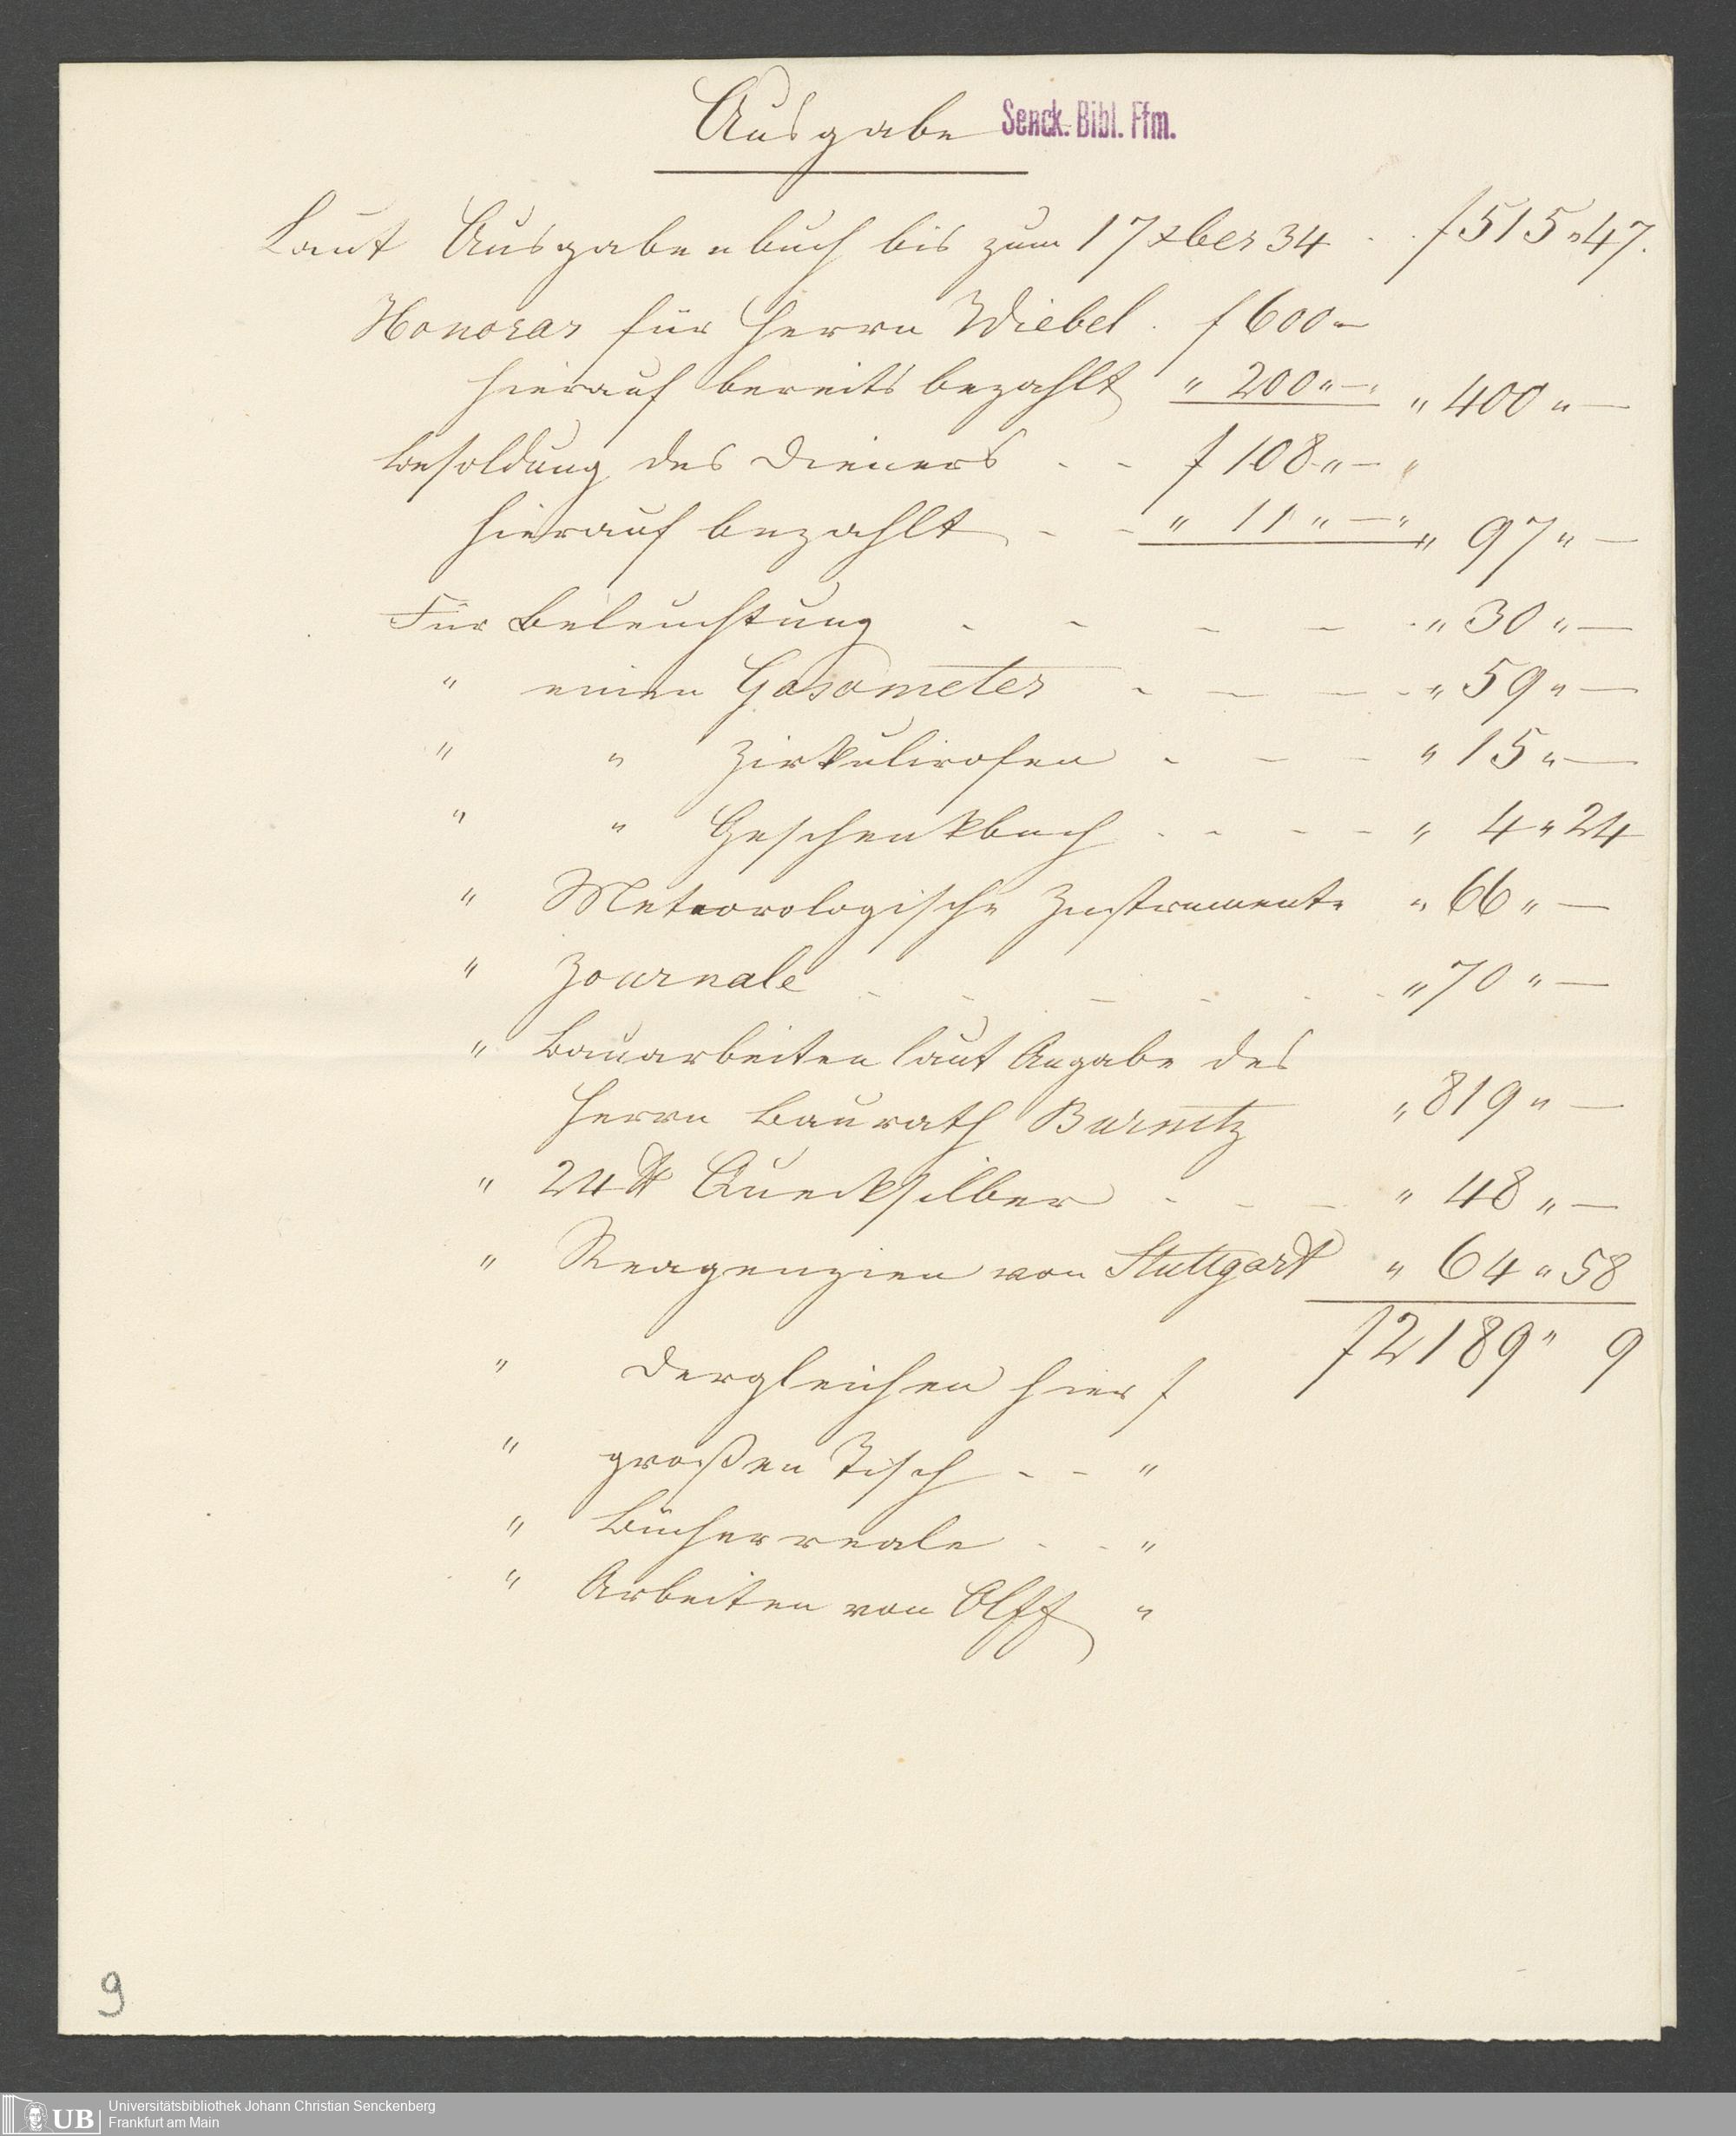 Ausgabe Senck. Bibl. Ffm.
Laut Ausgabenbuch bis zum 17 xber 34 . . f 515 „ 47.
Honorar für Herrn Wiebel . f 600 „ —
hierauf bereits bezahlt „ 200 „ — „ „ 400 „ —
Besoldung des Dieners - - f 108 „ — „
hierauf bezahlt - - „ 11 „ — „ „ 97 „ —
Für Beleuchtung - - - - . „ 30 „ —
„ einen Gasometer - - - - „ 59 „ —
„ „ Zirkulirofen - - - „ 15 „ —
„ „ Geschenkbuch - - - - „ 4 „ 24
„ Meteorologische Instrumente „ 66 „ —
„ Journale - - - - . . „ 70 „ —
„ Bauarbeiten laut Angabe des
Herrn Baurath Burnitz „ 819 „ —
„ 24 ℔ Quecksilber - - - „ 48 „ —
„ Reagenzien von Stuttgart „ 64 „ 58
f 2189 „ 9
„ dergleichen hier f
„ großen Tisch - - „
„ Bücherreale - - „
„ Arbeiten von Olff „
9
UB Universitätsbibliothek Johann Christian Senckenberg
Frankfurt am Main